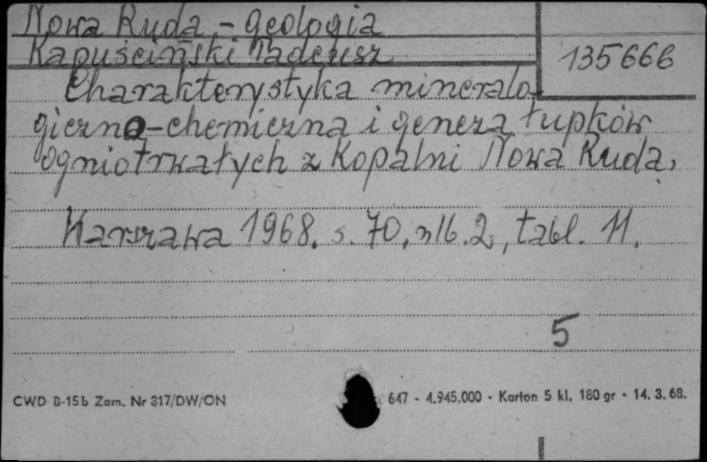 Nowa Ruda - geologia
Kapuściński Tadeusz
135666
Charakterystyka mineralo-
giczno-chemiczna i geneza łupków
ogniotrwałych z Kopalni Nowa Ruda,
Warszawa 1968. s. 70, nlb. 2, tabl. 11.
5
CWD B-15b Zam. Nr 317/DW/ON
647 - 4.945.000 - Karton 5 kl. 180 gr - 14. 3. 68.